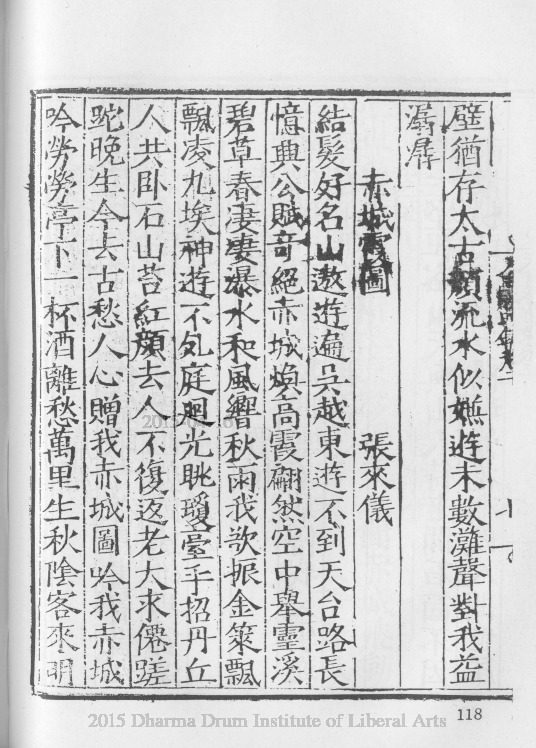 璧猶存太古顏流水似嫌遊未數灘聲對我益
潺潺
赤城霞圖 張來儀
結髮好名山遨遊遍吳越東遊不到天台路長
憶興公賦奇絕赤城煥高霞翩然空中舉靈溪
碧草春淒淒瀑水和風響秋雨我欲振金策飄
飄凌九埃神遊不死庭迴光眺瓊臺手招丹丘
人共卧石山苔紅顏去人不復返老大求僊蹉
跎晚生今去古愁人心贈我赤城圖吟我赤城
吟勞勞亭下一杯酒離愁萬里生秋陰客來明
118
2015 Dharma Drum Institute of Liberal Arts